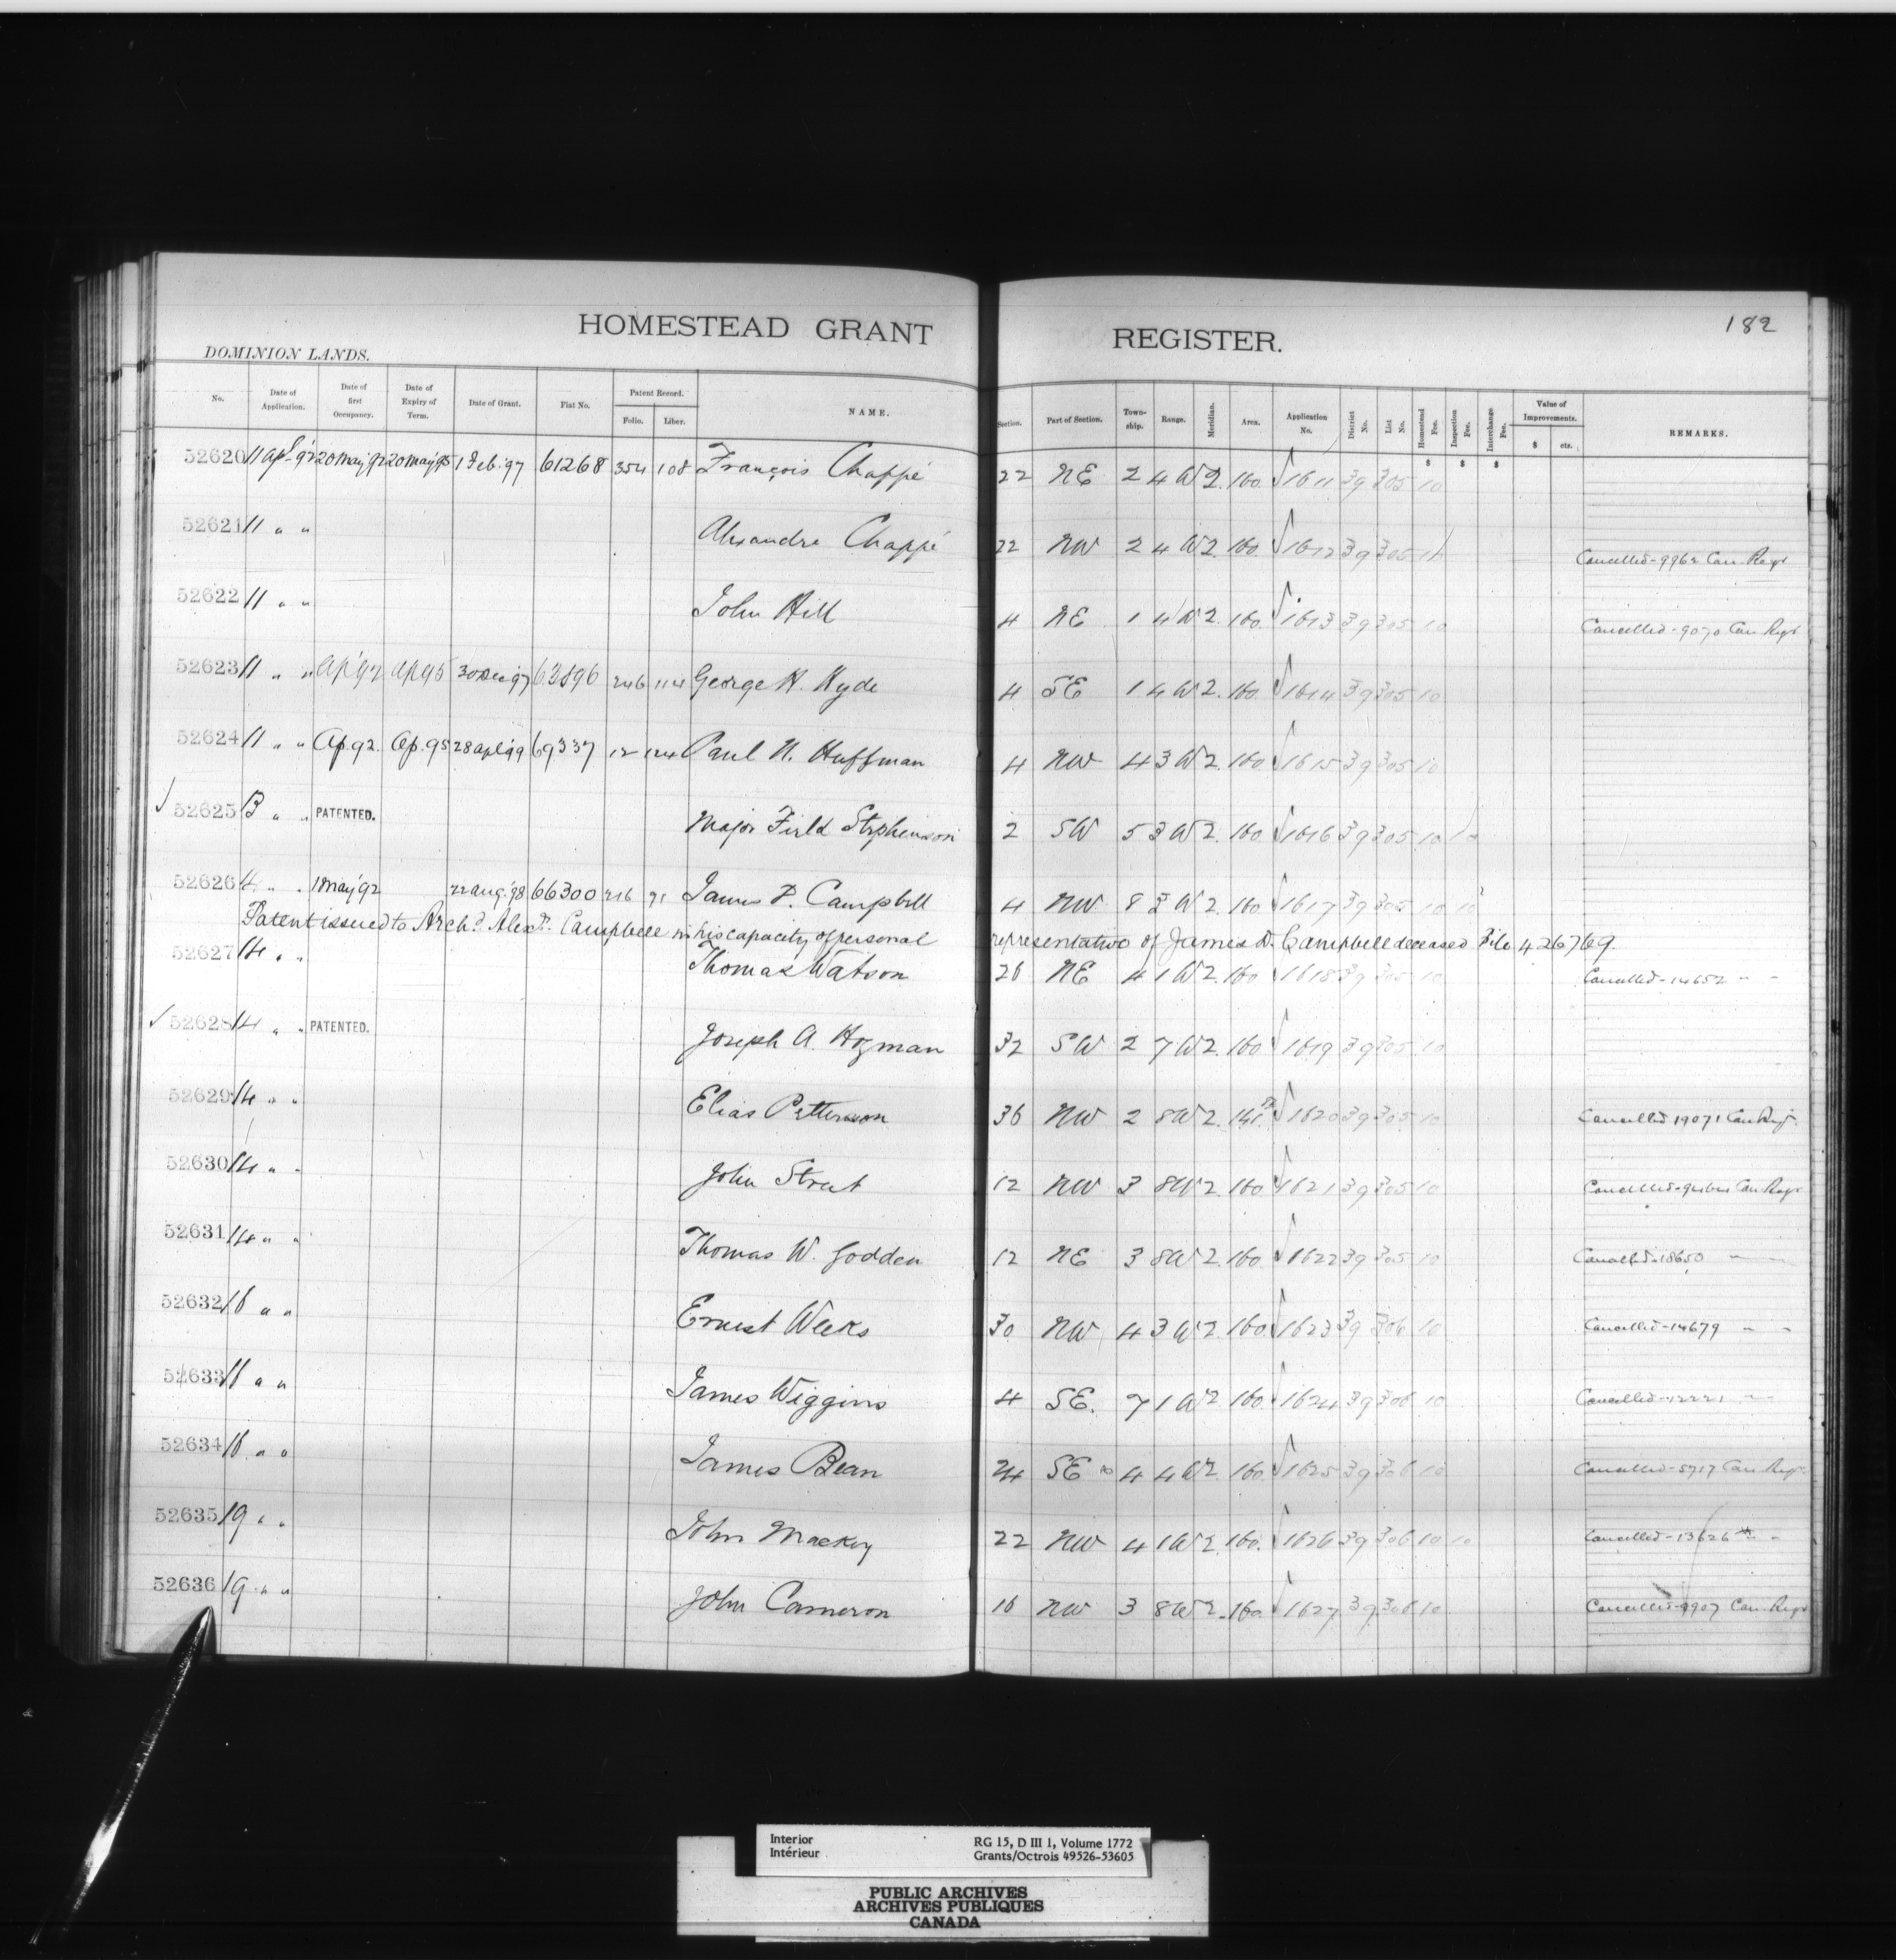 HOMESTEAD GRANT REGISTER.
182
DOMINION LANDS.
No. Date of Application. Date of first Occupancy. Date of Expiry of Term. Date of Grant. Fiat No. Patent Record. Folio. Liber. NAME. Section. Part of Section. Township. Range. Meridian. Area. Application No. District No. List No. Homestead Fee. Inspection Fee. Interchange Fee. Value of Improvements. $ cts. REMARKS.
$ $ $
52620 11 Apl '92 20 May '92 20 May '95 1 Feb. '97 61268 354 108 François Chappé 22 NE 2 4 W 2. 160. √1611 39 305 10
52621 11 " " Alexandre Chappé 22 NW 2 4 W 2. 160. √1612 39 305 Cancelled - 9962 Can. Regr
52622 11 " " John Hill 4 NE 1 4 W 2. 160. √1613 39 305 10 Cancelled - 9070 Can Regr
52623 11 " " Ap '92 Ap 95 30 Dec 97 246 114 George H. Hyde 4 SE 1 4 W 2. 160. √1614 39 305 10
52624 11 " " Ap. 92. Ap. 95 28 Apl 99 69337 12 124 Paul N. Huffman 4 NW 4 3 W 2. 160. √1615 39 305 10
√ 52625 13 " " PATENTED. Major Field Stephenson 2 SW 5 3 W 2. 160. √1616 39 305 10 10
52626 14 " " 1 May '92 22 Aug. '98 66300 216 91 James D. Campbell 4 NW 8 3 W 2. 160 √1617 39 305 10 10
Patent issued to Archd. Alexr. Campbell in his capacity of personal representative of James D. Campbell deceased File 426769.
52627 14 " " Thomas Watson 26 NE 4 1 W 2. 160 1618 39 305 10 Cancelled - 14652 " "
√ 52628 14 " " PATENTED. Joseph A. Hozman 32 SW 2 7 W 2. 160 √1619 39 305 10
52629 14 " " Elias Petterson 36 NW 2 8 W 2. √1620 39 305 10 Cancelled 19071 Can Regr.
52630 14 " " John Street 12 NW 3 8 W 2. 160 √1621 39 305 10 Cancelled - Can. Regr
52631 14 " " Thomas W. Godden 12 NE 3 8 W 2. 160. √1622 39 305 10 Cancelled - 18650 " "
52632 16 " " Ernest Weeks 30 NW 4 3 W 2. 160. √1623 39 306 10 Cancelled - 14679 " "
52633 16 " " James Wiggins 4 SE. 7 1 W 2 160. √1624 39 306 10 Cancelled - 12221 " "
52634 16 " " James Bean 24 SE 4 4 W 2. 160. √1625 39 306 10 Cancelled - 5717 Can. Regr.
52635 19 " " John Mackey 22 NW 4 1 W 2. 160. √1626 39 306 10 10 Cancelled - 13626 " "
52636 19 " " John Cameron 16 NW 3 8 W 2. 160. √1627 39 306 10 Cancelled - 9907 Can. Regr
Interior
Intérieur
RG 15, D III 1, Volume 1772
Grants/Octrois 49526-53605
PUBLIC ARCHIVES
ARCHIVES PUBLIQUES
CANADA